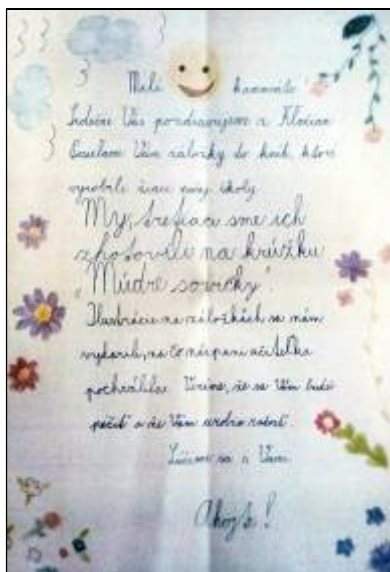 Milí kamaráti!
Srdečne Vás pozdravujeme z
Posielam Vám záložky do kníh, ktoré
vyrobili žiaci našej školy.
My, tretiaci sme ich
zhotovili na krúžku
„Múdre sovičky".
Ilustrácie na záložkách sa nám
vydarili, na čo nás pani učiteľka
pochválila. Veríme, že sa Vám budú
páčiť a že Vám urobia radosť.
Lúčime sa s Vami.
Ahojte!